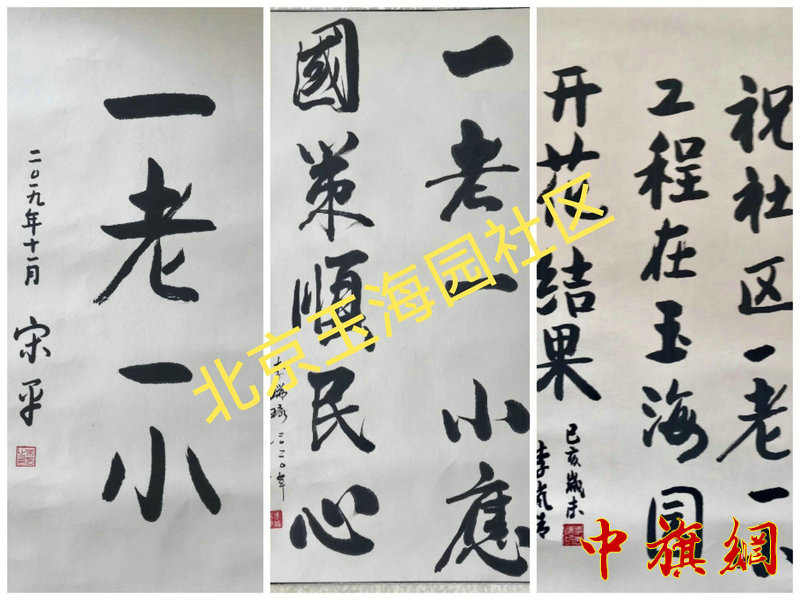 一老一小
二〇一九年十一月
宋平
一老一小應
國策順民心
李瑞環
祝社区一老一小
工程在玉海园
开花结果
己亥歲末
李岚清
北京玉海园社区
中旗網